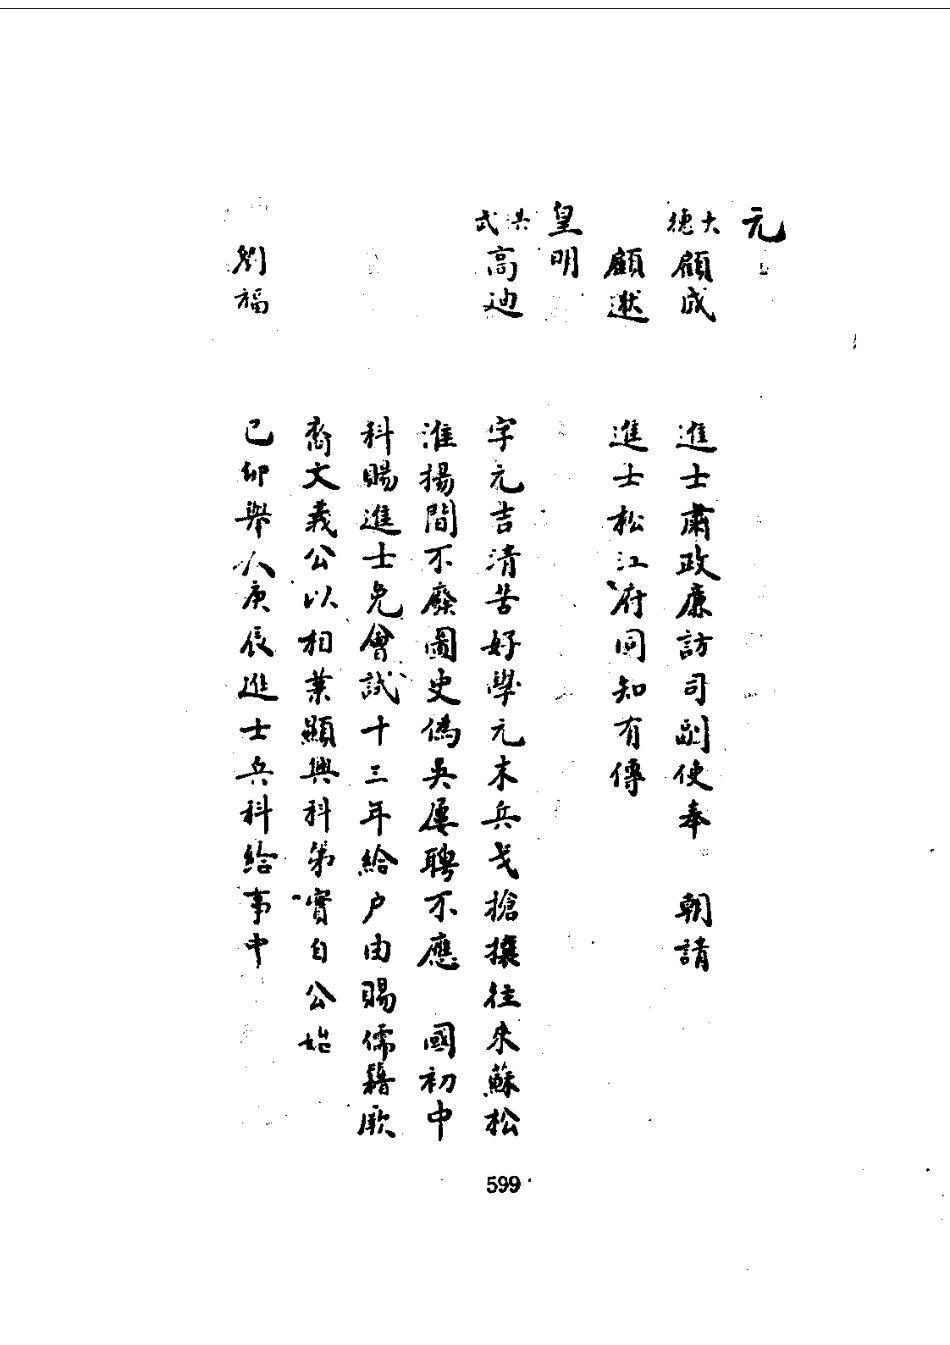 元
大德 顧成 進士肅政廉訪司副使奉 朝請
顧逖 進士松江府同知有傳
皇明
洪武 高迪 字元吉清苦好學元末兵戈搶攘往來蘇松
淮揚間不廢圖史偽吳屢聘不應 國初中
科賜進士免會試十三年給户由賜儒籍厥
裔文義公以相業顯興科第實自公始
劉福 己卯舉人庚辰進士兵科給事中
599